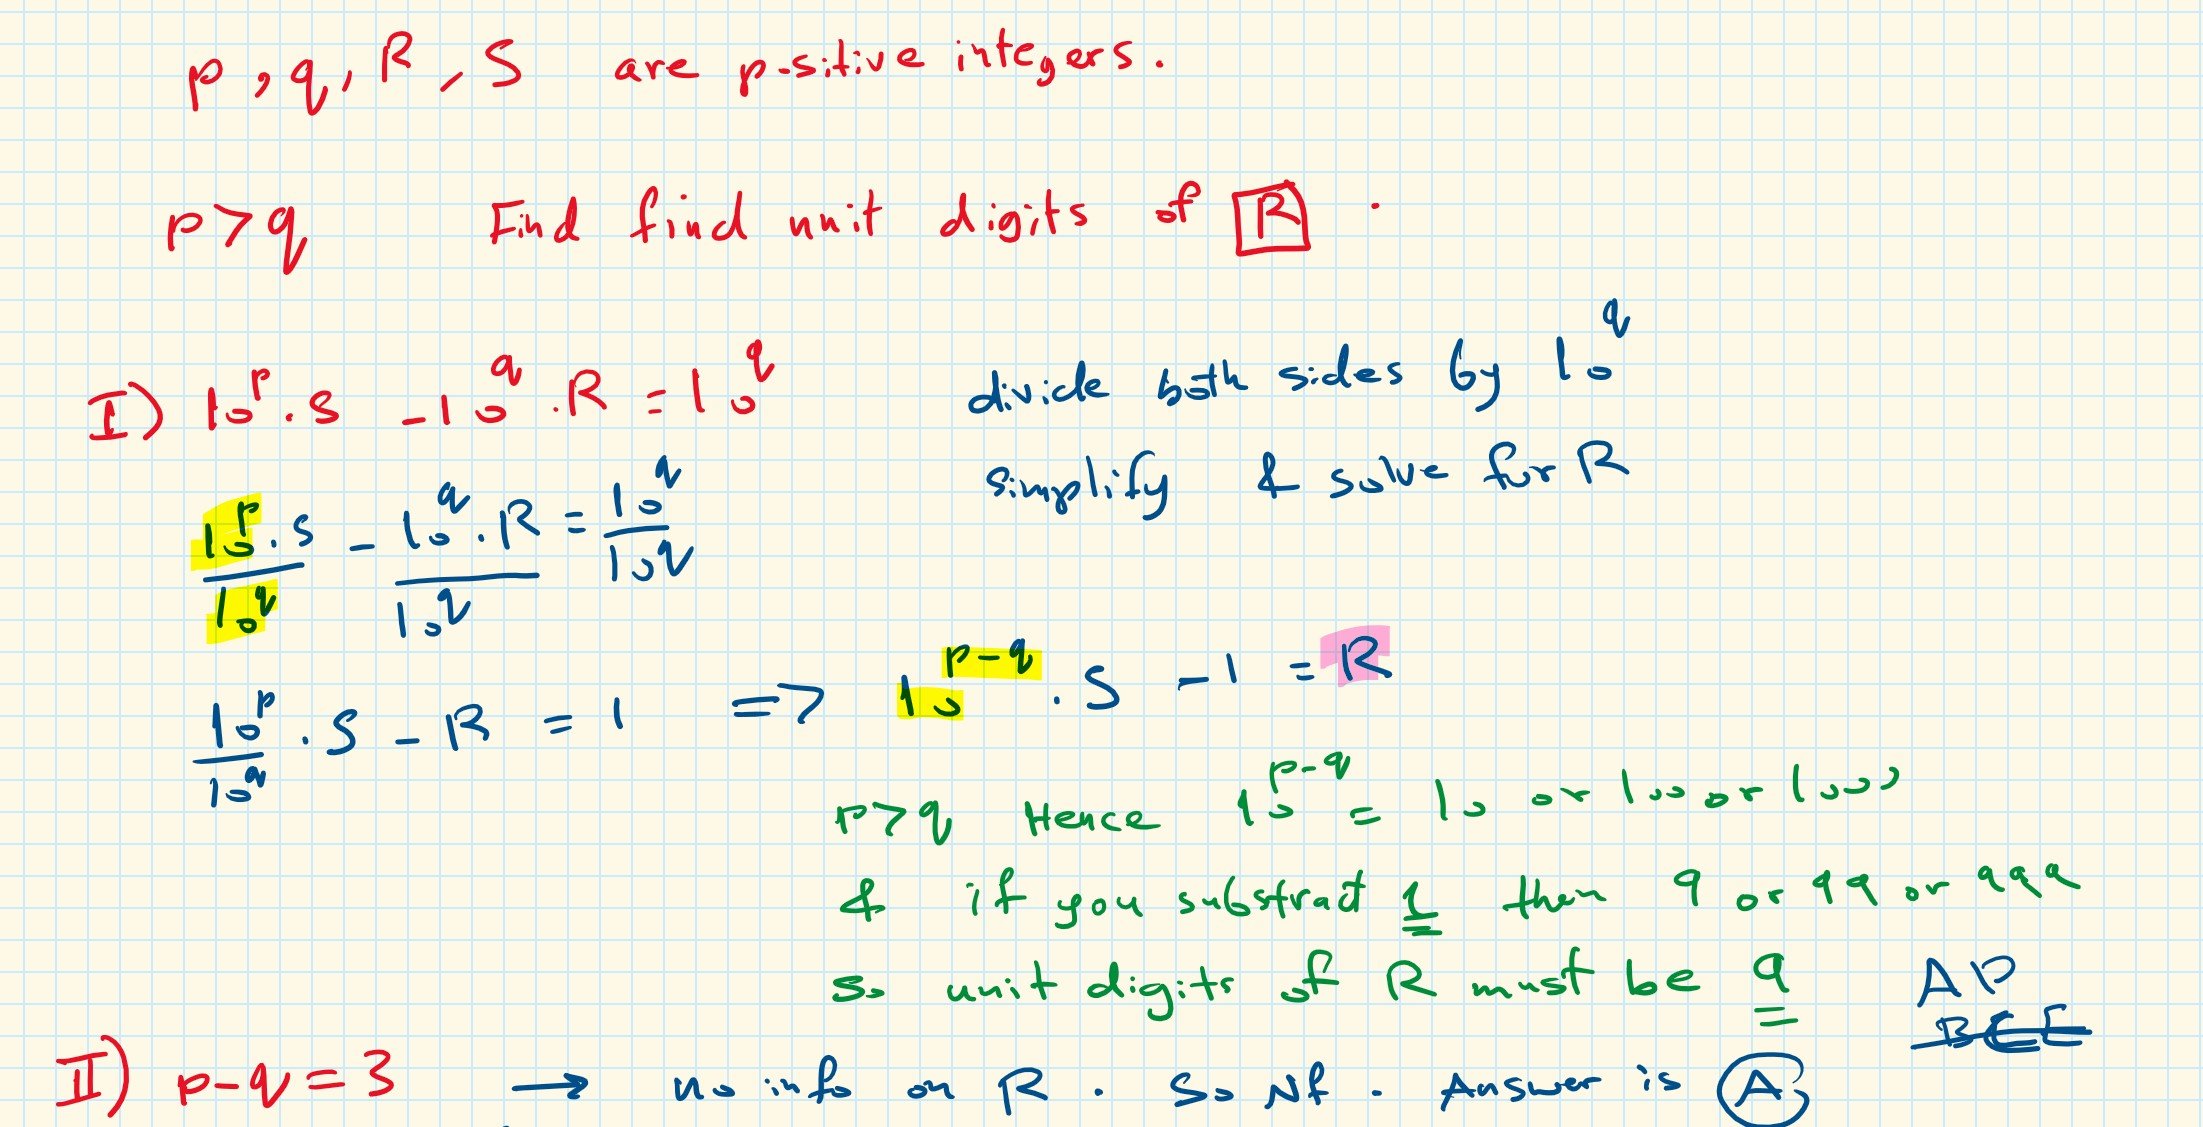 p, q, R, S are positive integers.
p>q Find find unit digits of R.
I) 10^p . S - 10^q . R = 10^q divide both sides by 10^q
simplify & solve for R
10^p . S / 10^q - 10^q . R / 10^q = 10^q / 10^q
10^p / 10^q . S - R = 1 => 10^(p-q) . S - 1 = R
p>q Hence 10^(p-q) = 10 or 100 or 1000
& if you substract 1 then 9 or 99 or 999
So unit digits of R must be 9 AD
BCE
II) p-q=3 → no info on R. So NF. Answer is A